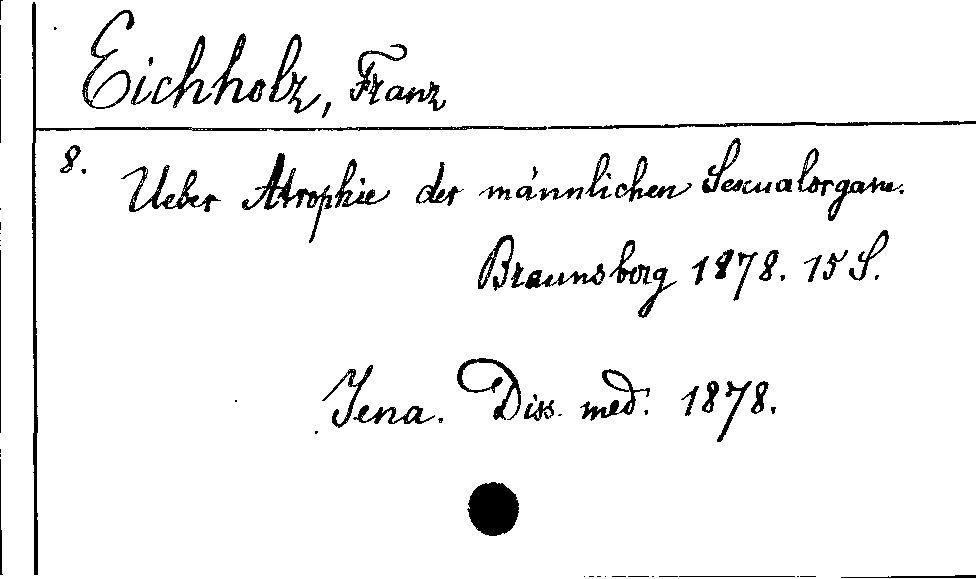 Eichholz, Franz
8. Ueber Atrophie der männlichen Sexualorgane.
Braunsberg 1878. 15 S.
Jena. Diss. med. 1878.